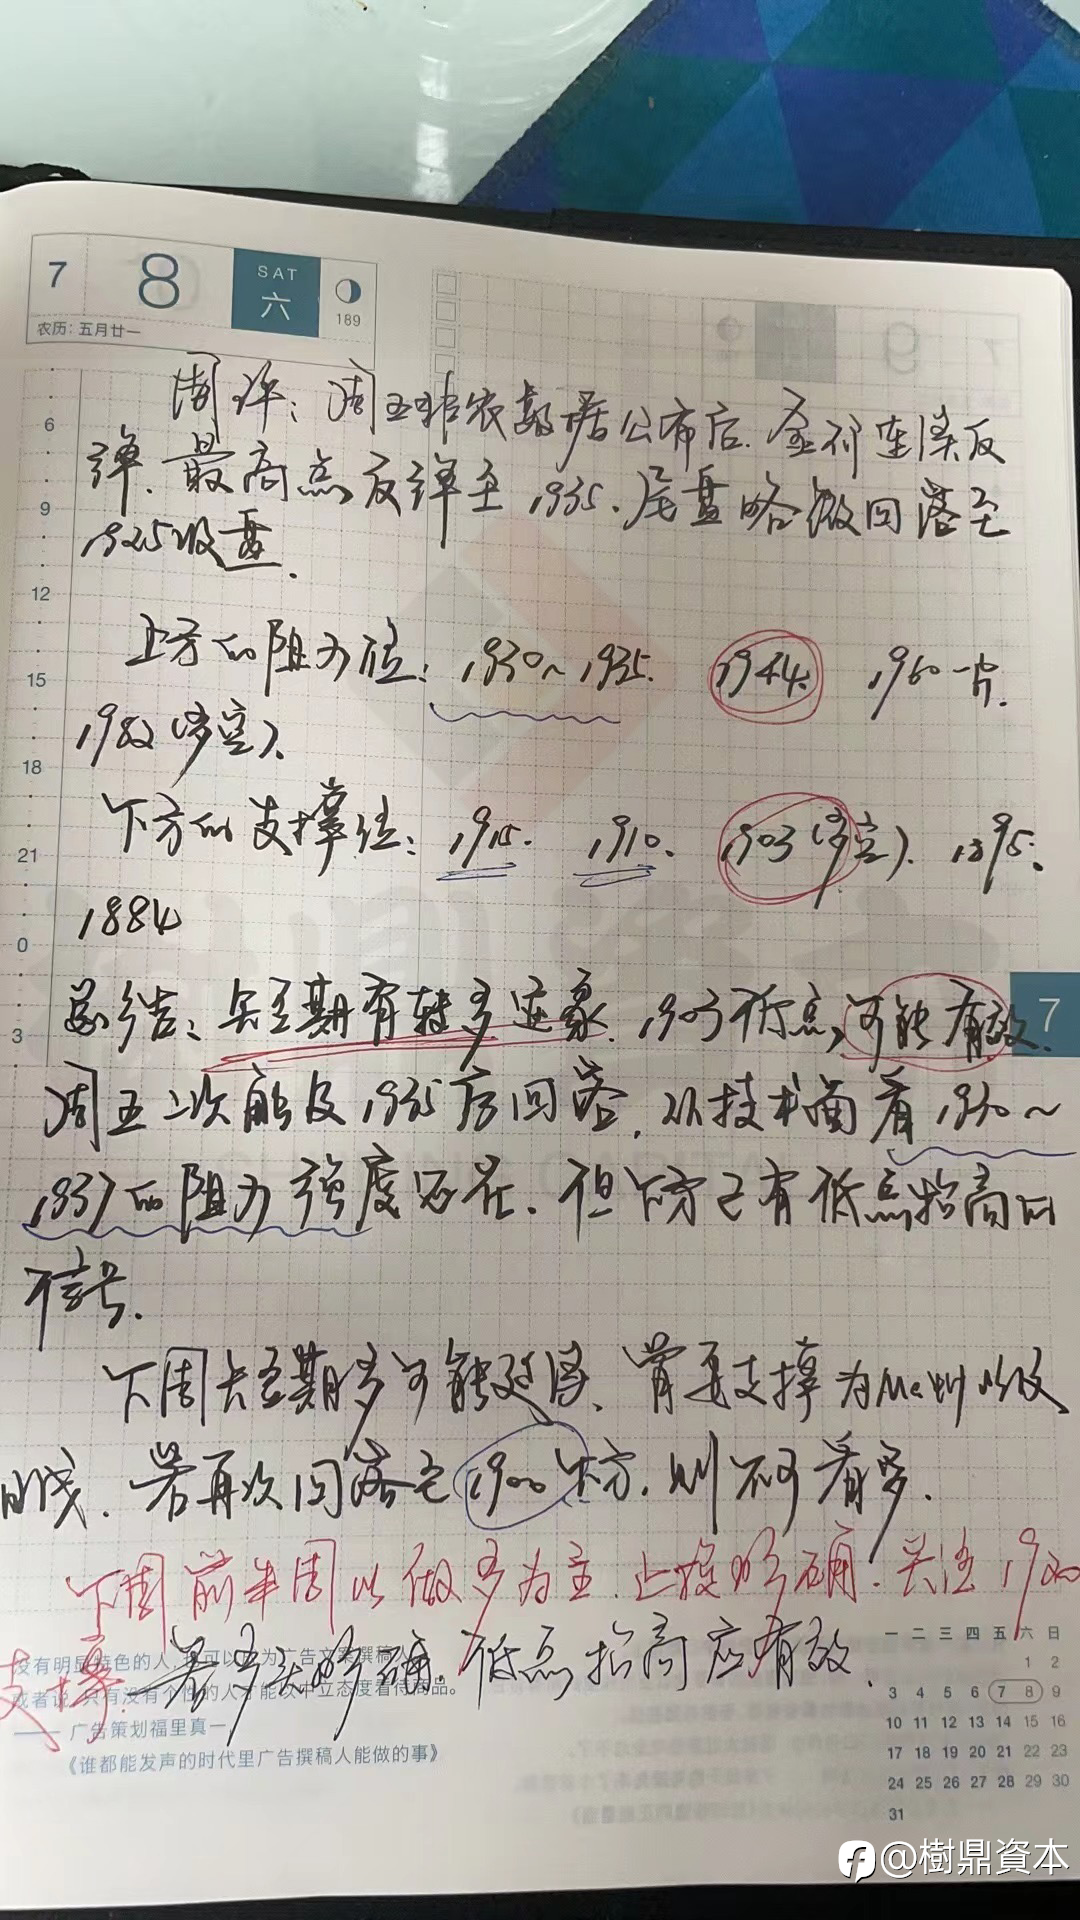 7 8 SAT 六 189
农历: 五月廿一
周评: 周五非农数据公布后. 连续反
弹. 最高点反弹至 1935. 尾盘略微回落至
1925收盘.
上方的阻力位: 1930~1935. 1944. 1960一片.
1982(多空).
下方的支撑位: 1915. 1910. 1903(多空). 1895.
1884
总结: 短期有转多迹象. 1903低点可能有效.
周五二次触及1935后回落, 从技术面看1930~
1937的阻力强度还在. 但下方已有低点抬高的
信号.
下周短期多可能延续. 需要支撑为
若再次回落至1900下方. 则不可看多.
下周前半周以做多为主. 关注1900
支撑. 若 低点抬高应有效.
6
9
12
15
18
21
0
3
7
没有明显特色的人,
或者说,只有没有个性的人才能以中立态度看待商品。
—— 广告策划福里真一
《谁都能发声的时代里广告撰稿人能做的事》
一 二 三 四 五 六 日
1 2
3 4 5 6 7 8 9
10 11 12 13 14 15 16
17 18 19 20 21 22 23
24 25 26 27 28 29 30
31
@樹鼎資本